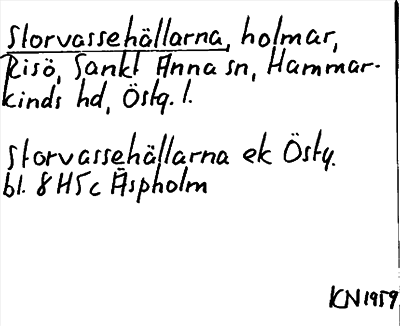 Storvassehällarna, holmar,
Risö, Sankt Anna sn, Hammar-
kinds hd, Östg. l.
Storvassehällarna ek Östg.
bl. 8 H5c Äspholm
KN 1959